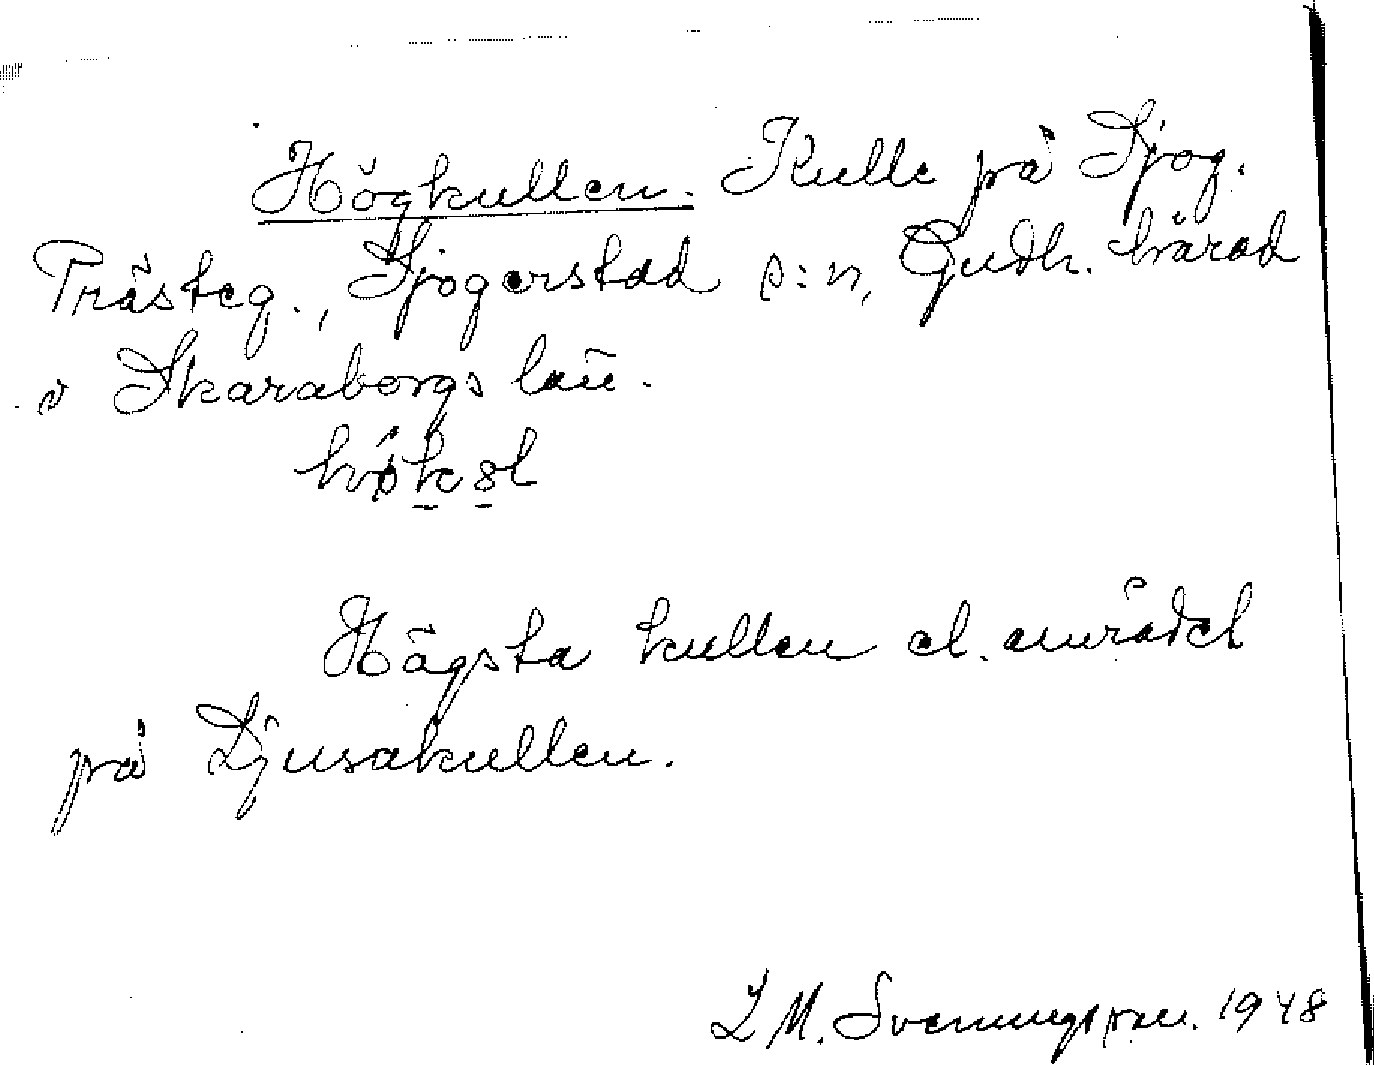 Högkullen. Kulle på Sjog.
Prästeg., Sjogerstad s:n, Gudh. härad
Skaraborgs län.
Högsta kullen el. området
på Ljusakullen.
Z M. Svenungsson. 1948